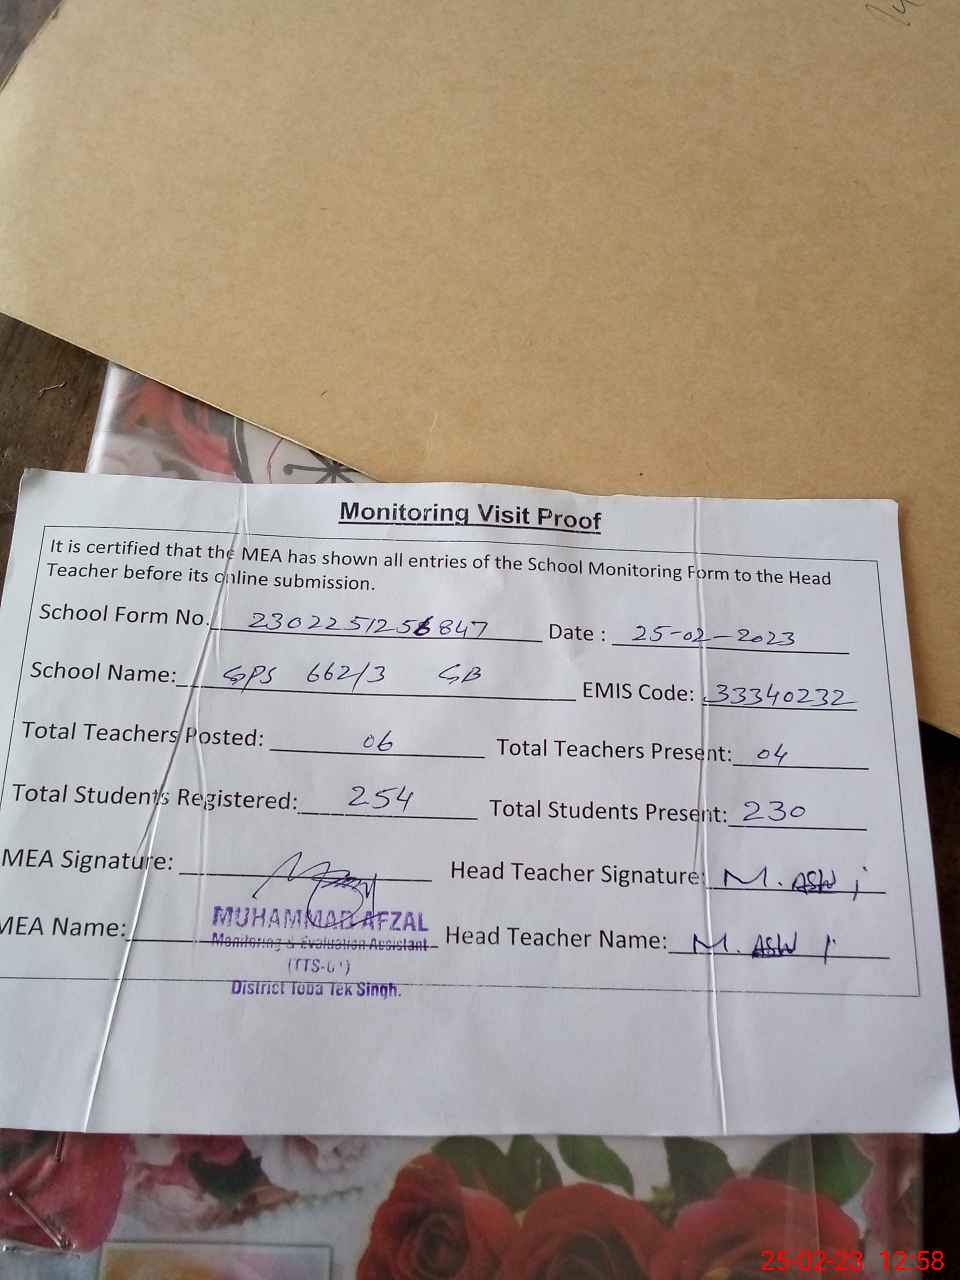 Monitoring Visit Proof
It is certified that the MEA has shown all entries of the School Monitoring Form to the Head
Teacher before its online submission.
School Form No. 2302251256847 Date : 25-02-2023
School Name: GPS 662/3 GB EMIS Code: 33340232
Total Teachers Posted: 06 Total Teachers Present: 04
Total Students Registered: 254 Total Students Present: 230
MEA Signature: Head Teacher Signature: M.
MEA Name: MUHAMMAD AFZAL Head Teacher Name: M.
Monitoring & Evaluation Assistant
District Toba Tek Singh.
25-02-23 12:58